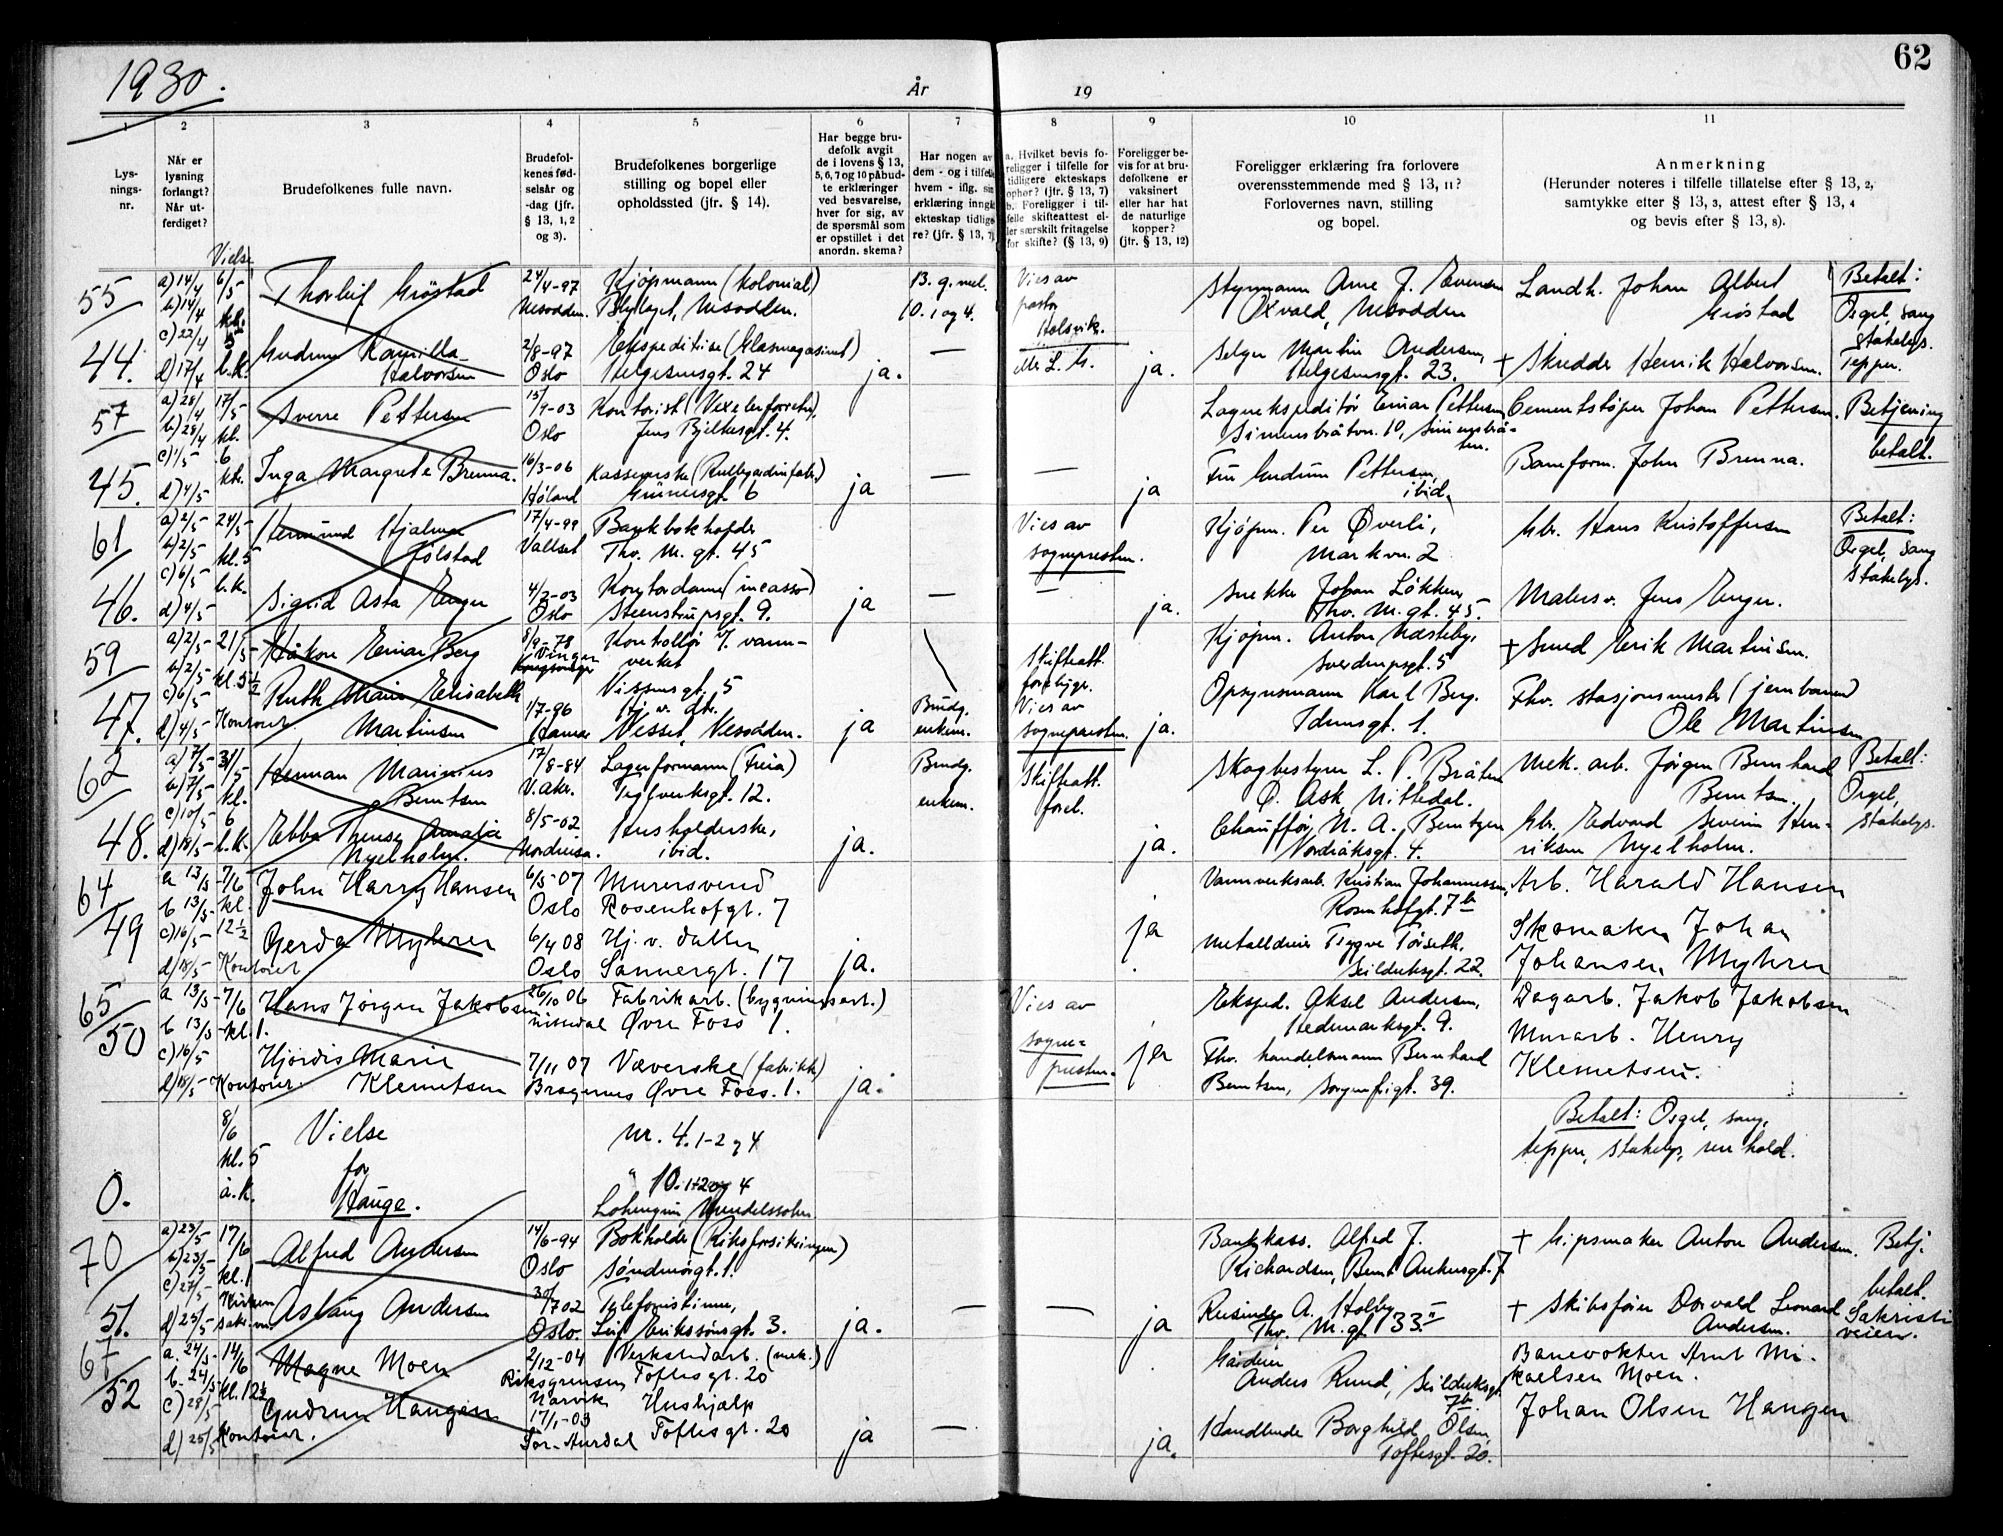 62
1930.
År
19
1
2
3
4
5
6
7
8
9
10
11
Lys-
nings-
nr.
Når er
lysning
forlangt?
Når ut-
ferdiget?
Vielse
Brudefolkenes fulle navn.
Brudefol-
kenes fød-
selsår og
-dag (jfr.
§ 13, 1, 2
og 3).
Brudefolkenes borgerlige
stilling og bopel eller
opholdssted (jfr. § 14).
Har begge bru-
defolk avgit
de i lovens § 13,
5, 6, 7 og 10 påbud-
te erklæringer
ved besvarelse,
hver for sig, av
de spørsmål som
er opstillet i det
anordn. skema?
Har nogen av
dem - og i tilfelle
hvem - iflg. sin
erklæring inngått
ekteskap tidlige-
re? (jfr. § 13, 7)
a. Hvilket bevis fo-
religger i tilfelle for
tidligere ekteskaps
ophør? (jfr. § 13, 7)
b. Foreligger i til-
felle skifteattest el-
ler særskilt fritagelse
for skifte? (§ 13, 9)
Foreligger be-
vis for at bru-
defolkene er
vaksinert
eller har hat
de naturlige
kopper?
(jfr. § 13, 12)
Foreligger erklæring fra forlovere
overensstemmende med § 13, 11?
Forlovernes navn, stilling
og bopel.
Anmerkning
(Herunder noteres i tilfelle tillatelse efter § 13, 2,
samtykke efter § 13, 3, attest efter § 13, 4
og bevis efter § 13, 8).
55
44.
a) 14/4
b) 14/4
c) 22/4
d) 17/4
6/5
kl.
5
b.K.
Thorleif Grøstad
Gudrun Kamilla
Halvorsen
24/4-97
Nesodden.
2/8-97
Oslo
Kjøpmann (Kolonial)
Nesodden.
Ekspeditrise (Glasmagasinet)
Helgesensgt. 24
ja.
13. g. mel.
10. 1 og 4.
—
Vies av
pastor
Holsvik.
ja.
Styrmann Arne J. Evensen
Oxvald, Nesodden
Selger Martin Andersen,
Helgesensgt. 23.
Landh. Johan Albert
Grøstad
+ Skredder Henrik Halvorsen.
Betalt:
Orgel, sang
stakelys.
Tepper.
57
45.
a) 28/4
b) 28/4
c) 1/5
d) 4/5
17/5
kl.
6
Sverre Pettersen
Inga Margrete Brenna.
15/9-03
Oslo
16/3-06
Høland
Kontorist (Vekselerforretn.)
Jens Bjelkesgt. 4.
Grünersgt. 6
ja
—
—
ja
Lagerekspeditør Einar Pettersen
Simensbråtvn. 10, Simensbrå-
ten.
Fru Gudrun Pettersen,
ibid.
Cementstøper Johan Pettersen.
Baneform. John Brenna.
Betjening
betalt.
61
46.
a) 2/5
b) 2/5
c) 6/5
d) 4/5
24/5
kl. 5
b.k.
Hjalmar
Jølstad
Sigrid Asta Enger
17/4-99
Vallset
4/2-03
Oslo
Bankbokholder
Thv. M. gt. 45
Kontordame (incasso)
Steenstrupsgt. 9.
ja
—
Vies av
sognepresten.
—
ja.
Kjøpm. Per Øverli,
Markvn. 2
Snekker Johan Løkken,
Thv. M. gt. 45.
Gbr. Hans Kristoffersen
Malersv. Jens Enger.
Betalt:
Orgel, sang
Stakelys.
59
47.
a) 2/5
b) 2/5
c) 6/5
d) 4/5
21/5
kl. 3 1/2
Kontoret
Håkon Einar Berg
Ruth Marie Elisabeth
Martinsen
8/9-78
K.vinger
1/7-96
Hamar
Kontrollør v. vann-
verket
5
Hj. v. dtr.
Nesset, Nesodden.
ja
Brudg.
enkem.
Skifteatt.
forebygr.
Vies av
sognepresten.
ja.
Kjøpm. Anton Næsteby,
Sverdrupsgt. 5
Opsynsmann Karl Berg.
Idunsgt. 1.
+ Smed Erik Martinsen.
Fhv. stasjonsmester (jernbanen)
Ole Martinsen
62
48.
a) 7/5
b) 7/5
c) 10/5
d) 18/5
31/5
kl.
6
b.k.
Herman Marinius
Berntsen
Ebba Therese Amalie
Nyelholm.
17/8-84
V. aker.
8/5-02.
Lagerformann (Freia)
Teglverksgt. 12.
Husholderske,
ibid.
ja.
Brudg.
enkem.
Skifteatt.
forel.
ja.
Skogbestyrer L. P. Bråten
Ø. Ask, Nittedal.
Chauffør N. A. Berntzen
Nordraaksgt. 4.
Mek. arb. Jørgen Bernhard
Berntsen.
Gbr. Edvard Severin Hen-
riksen Nyelholm.
Betalt:
Orgel,
stakelys.
64
49
a 13/5
b 13/5
c) 16/5
d) 18/5
7/6
kl.
12 1/2
Kontoret
John Harry Hansen
Gerda Myhrer
6/5-07
Oslo
6/4 08
Oslo
Murersvend
Rosenhofgt. 7
Hj. v. datter
Sannergt. 17
ja.
ja
.
Vannverksarb. Kristian Johannessen,
Rosenhofgt. 7b
Metalldreier Trygve Torseth.
Seilduksgt. 22.
Arb. Harald Hansen
Skomaker Johan
Johansen Myhrer
65
50
a 13/5
b 13/5
c) 16/5
d) 18/5
7/6
kl 1.
Kontoret.
Hans Jørgen Jakobsen
Hjørdis Marie
Klemetsen
26/10 06
Nittedal
7/11 07
Bragernes
Fabrikarb. (bygningsart.)
Øvre Foss 1.
Væverske (fabrikk)
Øvre Foss. 1.
ja.
Vies av
sogne-
presten.
ja
Eksped. Aksel Andersen,
Hedemarksgt. 9.
Fhv. handelsmann Bernhard
Berntsen, Sorgenfrigt. 39.
Dagarb. Jakob Jakobsen
Murarb. Henry
Klemetsen.
0.
8/6
kl. 5
å.k.
Vielse
for
Hauge.
nr. 4. 1-2 og 4
" 10. 1+2 og 4
Lohengrin Mendelssohn
Betalt: Orgel, sang,
tepper, stakelys, renhold.
70
51.
a) 23/5
b) 23/5
c) 27/5
d) 25/5
17/6
kl. 1
Kirken
Alfred Andersen
Aslaug Andersen
14/6-94
Oslo
30/7 02
Oslo.
Bokholder (Riksforsikringen)
Søndmørgt. 1.
Telefonistinne,
Leif Erikssønsgt. 3.
ja.
—
—
ja
Bankkass. Alfred J.
Richardsen, Bernt Ankersgt. 7
A. Holby
Thv. M. gt. 33 II
+ Gipsmaker Anton Andersen.
+ Skibsfører Dorvald Leonard
Andersen.
Betj.
betalt.
Sakristi
veien.
67
52
a. 24/5
b. 24/5
c) 28/5
d) 25/5
14/6
kl. 12 1/2
Kontoret.
Magne Moen
Gudrun Haugen
2/12-04
Riksgrensen
Narvik
17/1-03
Sør-Aurdal
Verkstedarb. (mek.)
Toftesgt. 20
Hushjelp
Toftesgt. 20
ja
—
ja.
Gårdeier
Anders Rund, Seilduksgt.
7b.
Borghild Olsen,
Toftesgt. 20.
Banevokter Arnt Mi-
kaelsen Moen.
Johan Olsen Haugen